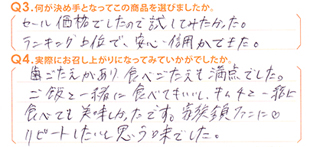 Q3.何が決め手となってこの商品を選びましたか。
セール価格でしたので試してみたかった。
ランキング上位で、安心・信用ができた。
Q4.実際にお召し上がりになってみていかがでしたか。
歯ごたえがあり食べごたえも満点でした。
ご飯と一緒に食べてもいいし、キムチと一緒に
食べても美味しかったです。家族鍋ファンに♡
リピートしたいと思う味でした。